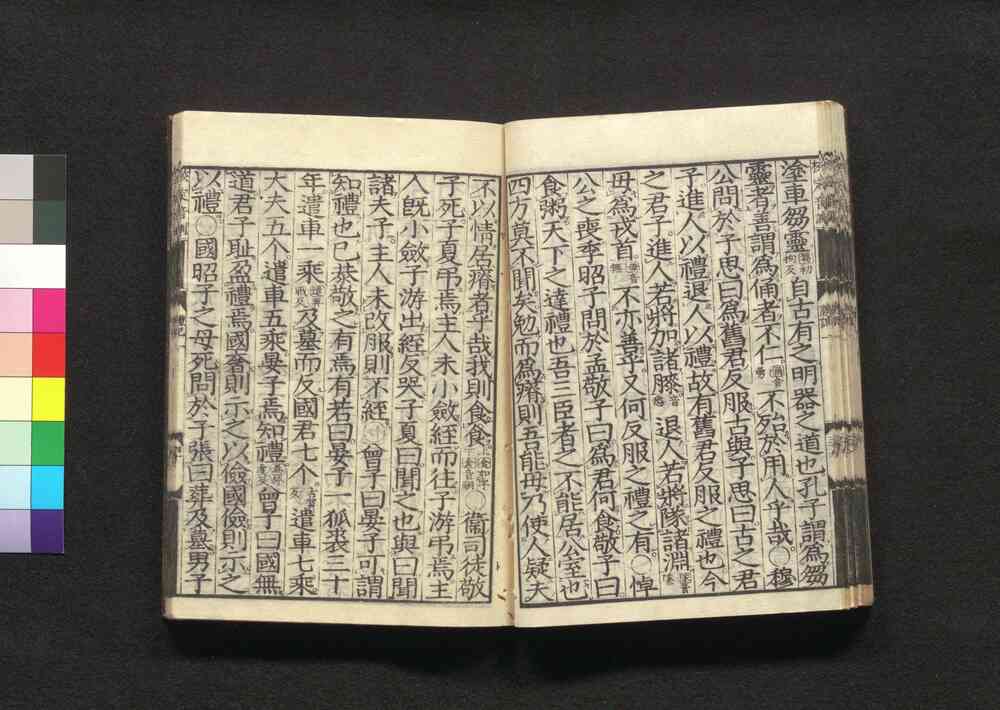 塗車芻靈芻初拘反自古有之明器之道也孔子謂爲芻
靈者善謂爲俑者不仁俑音勇不殆於用人乎哉○穆
公問於子思曰爲舊君反服古與子思曰古之君
子進人以禮退人以禮故有舊君反服之禮也今
之君子進人若將加諸膝音悉退人若將隊諸淵
毋爲戎首不亦善乎又何反服之禮之有○悼
公之喪季昭子問於孟敬子曰爲君何食敬子曰
食粥天下之達禮也吾三臣者之不能居公室也
四方莫不聞矣勉而爲瘠則吾能毋乃使人疑夫
不以情居瘠者乎哉我則食食○衞司徒敬
子死子夏弔焉主人未小斂絰而往子游弔焉主
人既小斂子游出絰反哭子夏曰聞之也與曰聞
諸夫子主人未改服則不絰○曾子曰晏子可謂
知禮也已恭敬之有焉有若曰晏子一狐裘三十
年遣車一乘及墓而反國君七个遣車七乘
大夫五个遣車五乘晏子焉知禮曾子曰國無
道君子恥盈禮焉國奢則示之以儉國儉則示之
以禮○國昭子之母死問於子張曰葬及墓男子